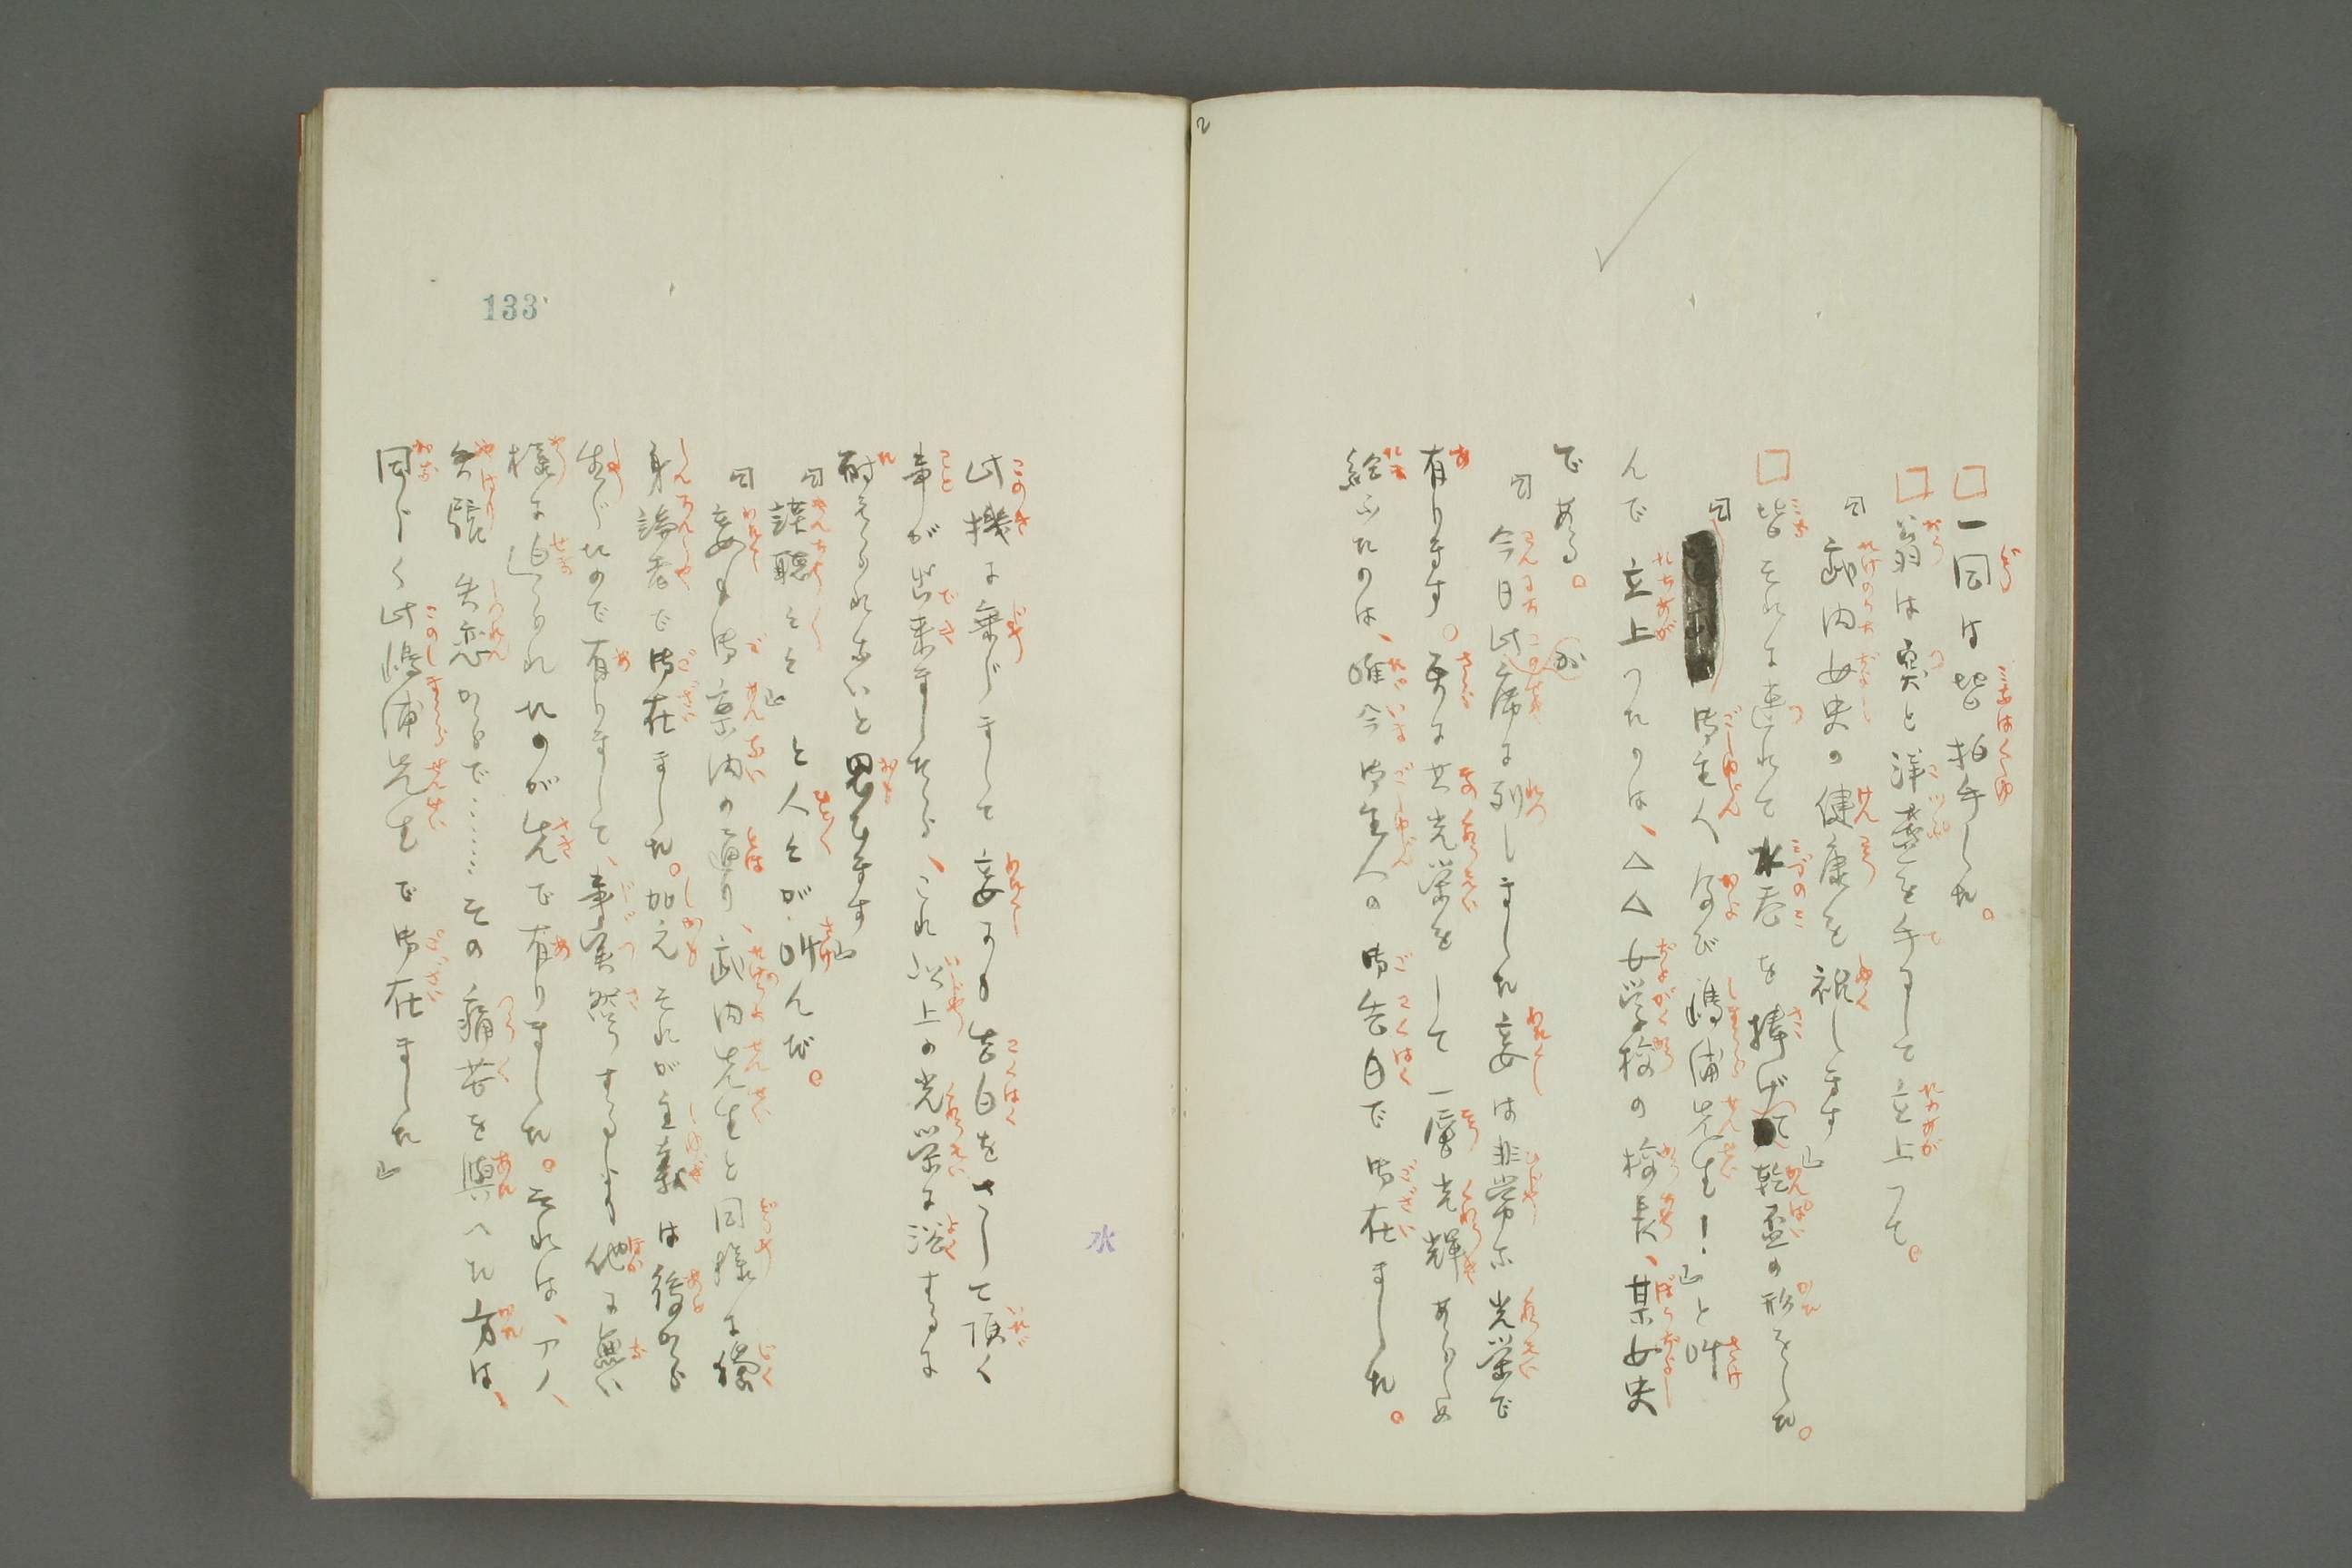 一同は皆拍手した。
翁は突と洋盞を手にして立上つて。
「武内女史の健康を祝します」
皆それに連れて水呑を捧げて乾盃の形をした。
「御主人及び嶋浦先生!」と叫
んで立上つたのは、△△女学校の校長、某女史
である。
「今日此席に列しました妾は非常な光栄で
有ります。更に其光栄をして一層光輝あらしめ
給ふたのは、唯今御主人の御告白で御在ました。
此機に乗じまして妾よりも告白をさして頂く
事が出来ましたら、これ以上の光栄に浴するに
耐えられないと思ひます」
「謹聴々々」と人々が叫んだ。
「妾も御案内の通り、武内先生と同様に独
身論者で御在ました。加之それが主義は後から
生じたので有りまして、事実然うするより他に無い
様に迫られたのが先で有りました。それは、アノ、
矢張失恋からで……その痛苦を與へた方は、
同じく此嶋浦先生で御在ました」
133
水